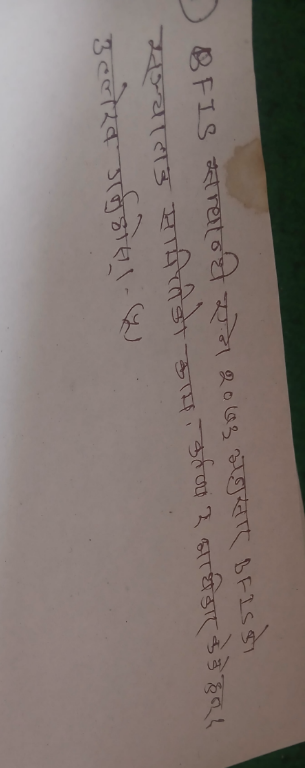 BFIS सम्बन्धी ऐन २०७३ अनुसार BFISको
सञ्चालक समितिको काम, कर्तव्य र अधिकार के के हुन् ।
उल्लेख गर्नुहोस् । (५)